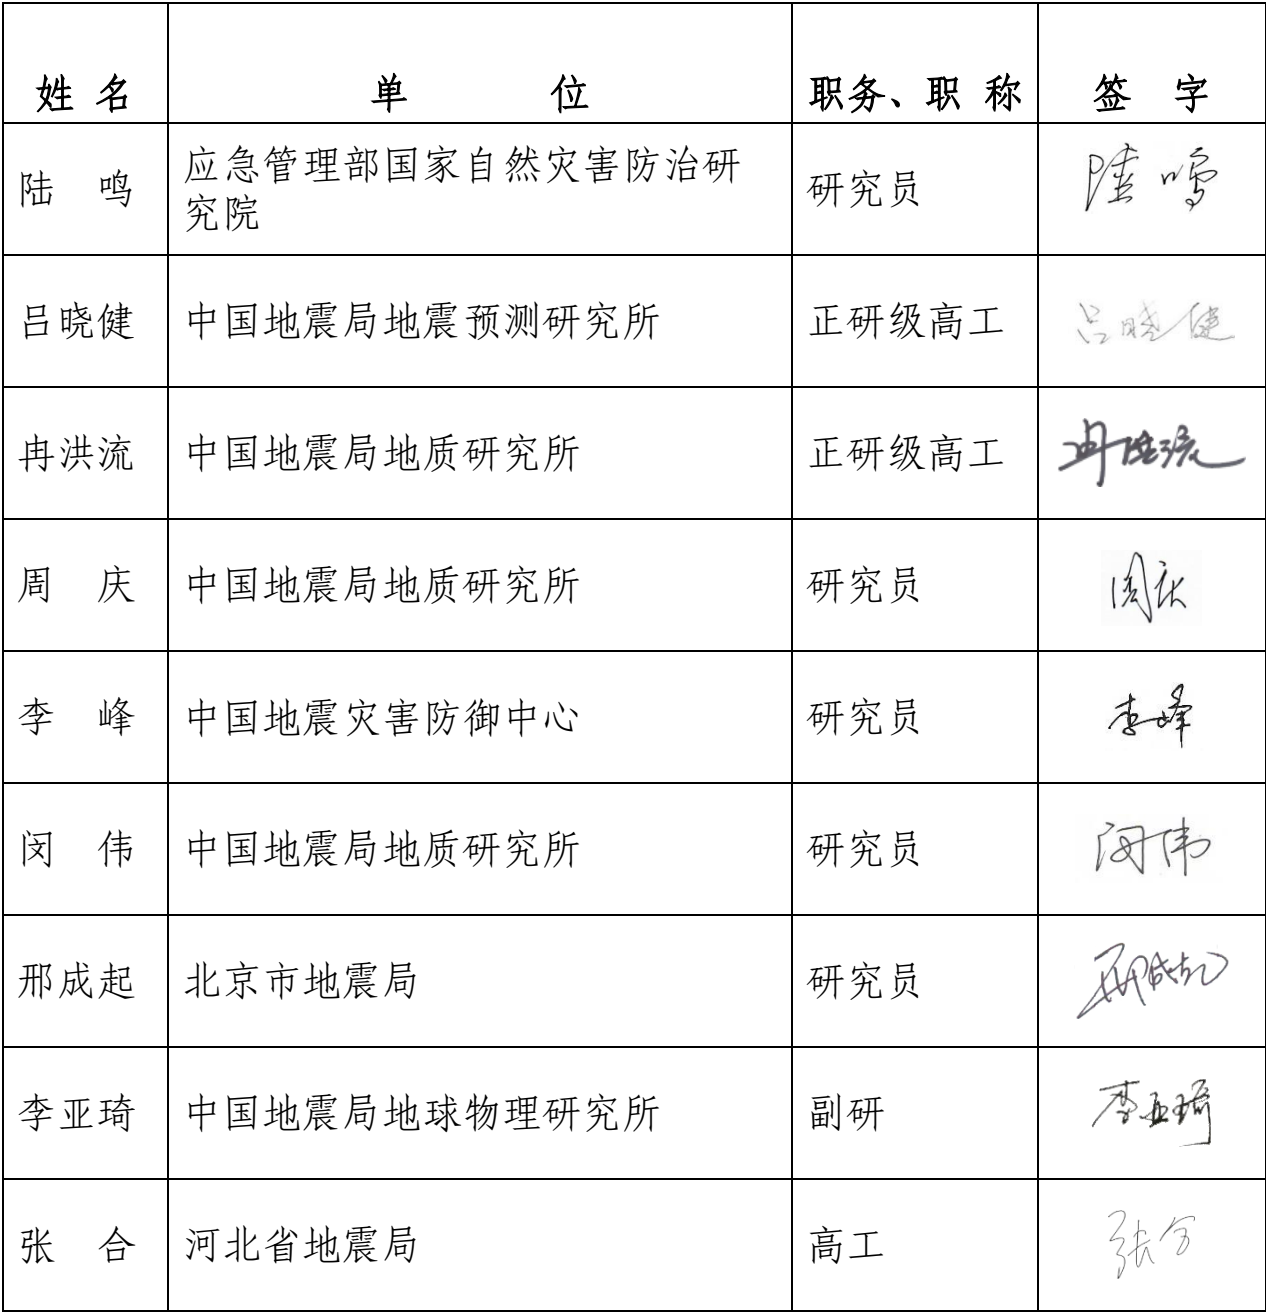 姓 名 单 位 职务、职 称 签 字
陆 鸣 应急管理部国家自然灾害防治研
究院 研究员 陆鸣
吕晓健 中国地震局地震预测研究所 正研级高工 吕晓健
冉洪流 中国地震局地质研究所 正研级高工 冉洪流
周 庆 中国地震局地质研究所 研究员 周庆
李 峰 中国地震灾害防御中心 研究员 李峰
闵 伟 中国地震局地质研究所 研究员 闵伟
邢成起 北京市地震局 研究员 邢成起
李亚琦 中国地震局地球物理研究所 副研 李亚琦
张 合 河北省地震局 高工 张合